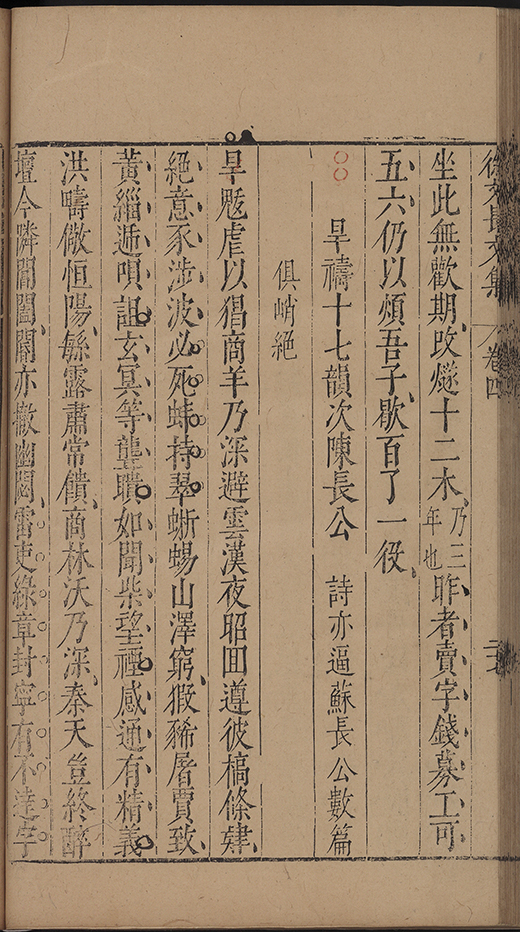 徐文長文集 卷四
坐此無歡期改燧十二木乃三年也昨者賣字錢募工可
五六仍以煩吾子歇百了一役
旱禱十七韻次陳長公 詩亦逼蘇長公數篇
俱峭絕
旱魃虐以猖商羊乃深避雲漢夜昭回遵彼槁條肄
絕意豕涉波必死蚌持翠蜥蜴山澤窮猳豨屠賈致
黃緇遁唄詛玄冥等聾聵如聞柴望禋感通有精義
洪疇儆恒陽繇露肅常饋商林沃乃深秦天豈終醉
壇今嶙閶闔闢亦撤幽閟雷吏綠章封寧有不達字